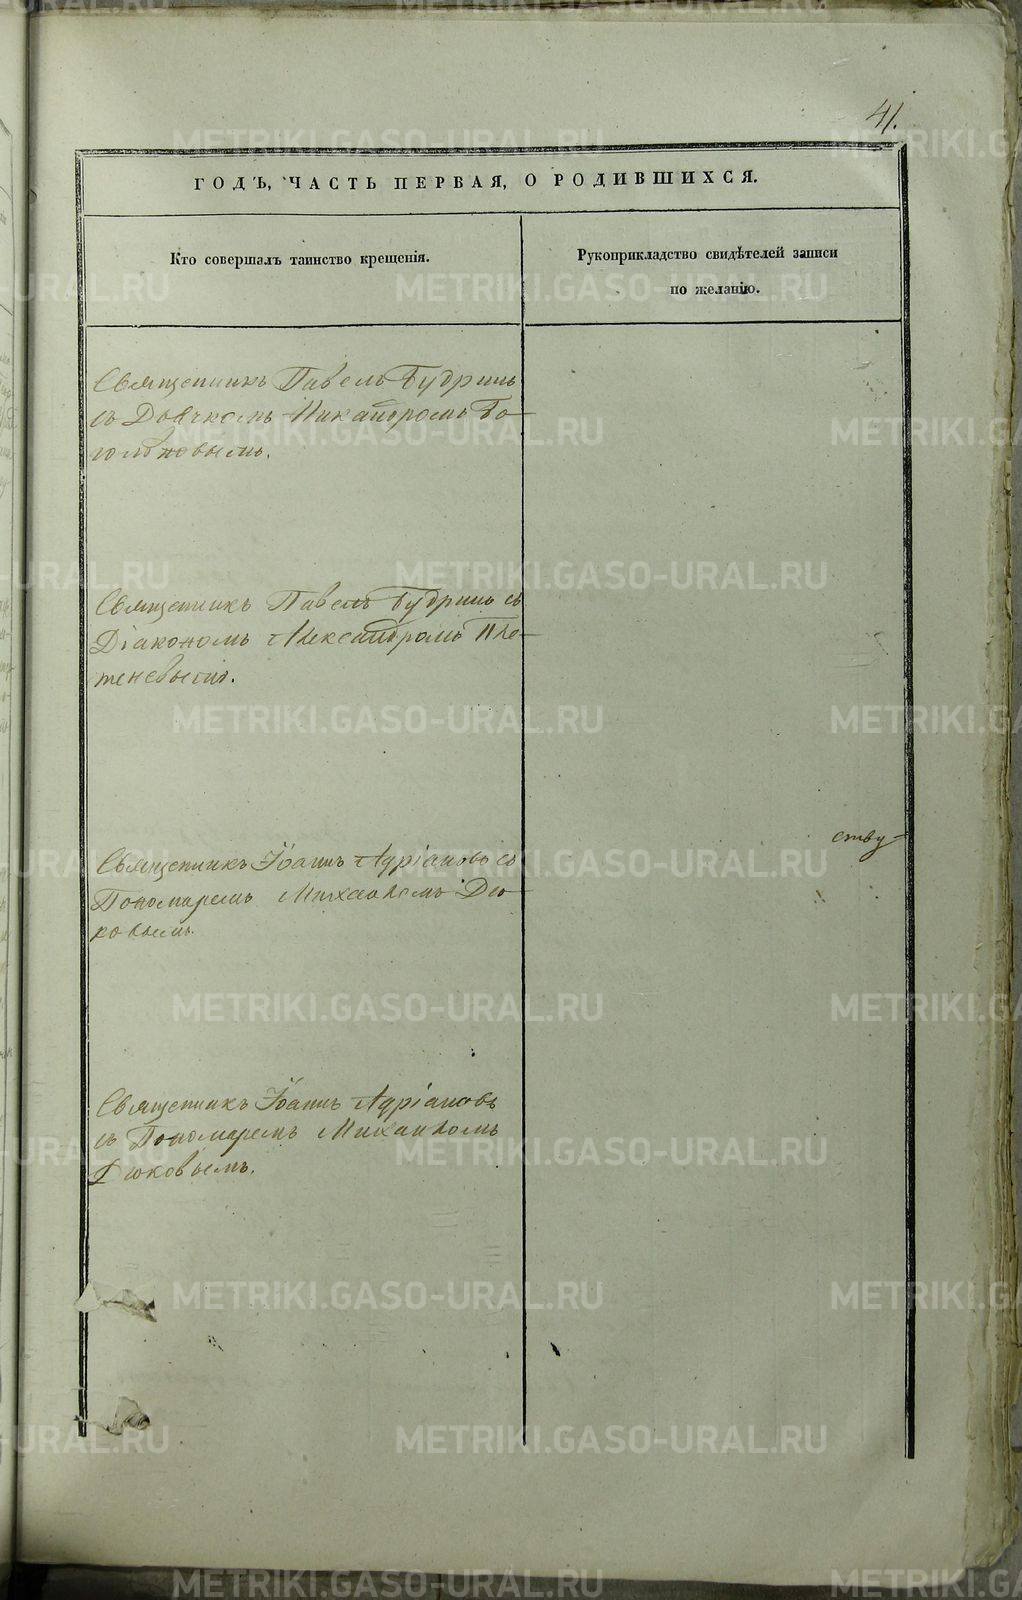 41.
ГОДЪ, ЧАСТЬ ПЕРВАЯ, О РОДИВШИХСЯ.
Кто совершалъ таинство крещенія.
Рукоприкладство свидѣтелей записи
по желанію.
Священникъ Павелъ Будринъ
съ Дьячкомъ Никандромъ Бо-
голюбовымъ.
Священникъ Павелъ Будринъ съ
Діакономъ Александромъ
Священникъ Іоаннъ Адріановъ съ
Пономаремъ Михаиломъ Дю-
ковымъ.
Священникъ Іоаннъ Адріановъ
съ Пономаремъ Михаиломъ
Дюковымъ.
ству-
METRIKI.GASO-URAL.RU